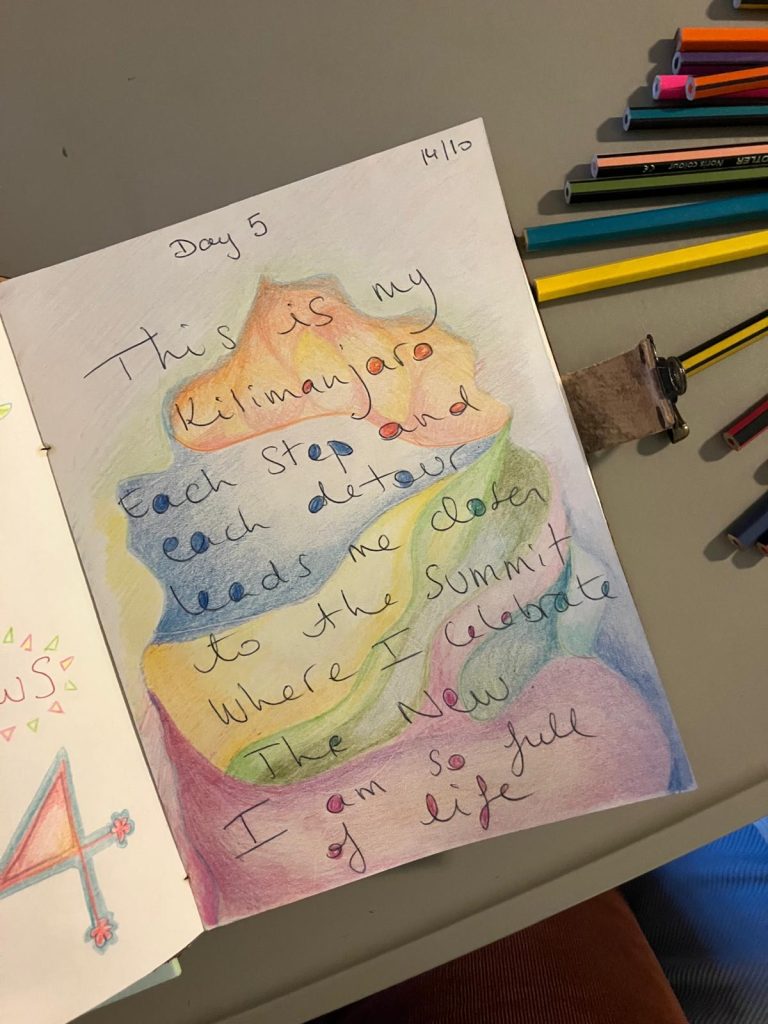 14/10
Day 5
This is my
Kilimanjaro
Each step and
each detour
leads me closer
to the summit
Where I celebrate
The New.
I am so full
of life
ws
4
STAEDTLER Noris colour CE